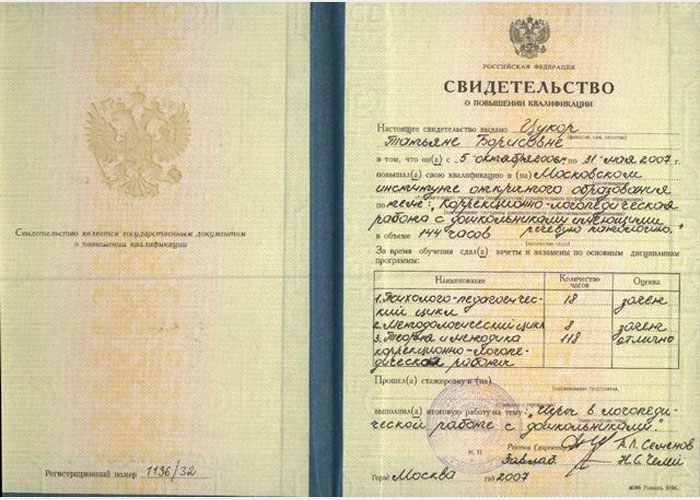 Свидетельство является государственным документом
о повышении квалификации
Регистрационный номер 1136/32
РОССИЙСКАЯ ФЕДЕРАЦИЯ
СВИДЕТЕЛЬСТВО
О ПОВЫШЕНИИ КВАЛИФИКАЦИИ
Настоящее свидетельство выдано Цукор
(фамилия, имя, отчество)
Татьяне Борисовне
в том, что он(а) с 5 октября 2006г. по 31 мая 2007 г.
повышал(а) свою квалификацию в (на) Московском
институте открытого образования
по теме: „Коррекционно-логопедическая
работа с дошкольниками имеющими
в объеме 144 часов речевую патологию."
За время обучения сдал(а) зачеты и экзамены по основным дисциплинам
программы:
Наименование Количество часов Оценка
1. Психолого-педагогичес- 18 зачет
кий цикл
2. Методологический цикл 8 зачет
3. Теория и методика 118 отлично
коррекционно-логопе-
дической работы
Прошел(а) стажировку в (на)
(наименование предприятия,
выполнил(а) итоговую работу на тему: „Игры в логопеди-
ческой работе с дошкольниками."
М. П.
Ректор (директор) А.Л. Семенов
Завлаб. Н.С. Челей
Город Москва год 2007